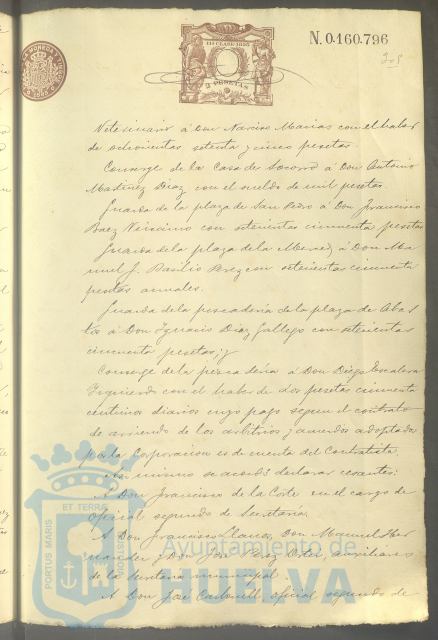 N. 0.160.796
11ª CLASE 1895
2 PESETAS
Veterinario á Don Narciso Macias con el haber
de ochocientas setenta y cinco pesetas.
Conserge de la Casa de Socorro á Don Antonio
Martinez Diaz con el sueldo de mil pesetas.
Guarda de la plaza de San Pedro á Don Francisco
Baez Neiscimo con setecientas cincuenta pesetas
Guarda de la plaza de la Merced á Don Ma
nuel J. Basilio Perez con setecientas cincuenta
pesetas annales.
Guarda de la pescaderia de la plaza de Abas
tos á Don Ignacio Diaz Gallego con setecientas
cincuenta pesetas; y
Conserge de la pescaderia á Don Diego Escalera
Izquierdo con el haber de dos pesetas cincuenta
centimos diarios cuyo pago segun el contrato
de arriendo de los arbitrios y acuerdos adoptados
por la Corporacion es de cuenta del Contratista.
Asi mismo se acordó declarar cesantes:
A Don Francisco de la Corte en el cargo de
Oficial segundo de Secretaría.
A Don Francisco Llanos, Don Manuel Her
nandez y Don José Perez, auxiliares
de la Secretaria municipal.
A Don José Carbonell, oficial segundo de
PORTUS MARIS
ET TERRÆ
CUSTODIA
Ayuntamiento de
HUELVA